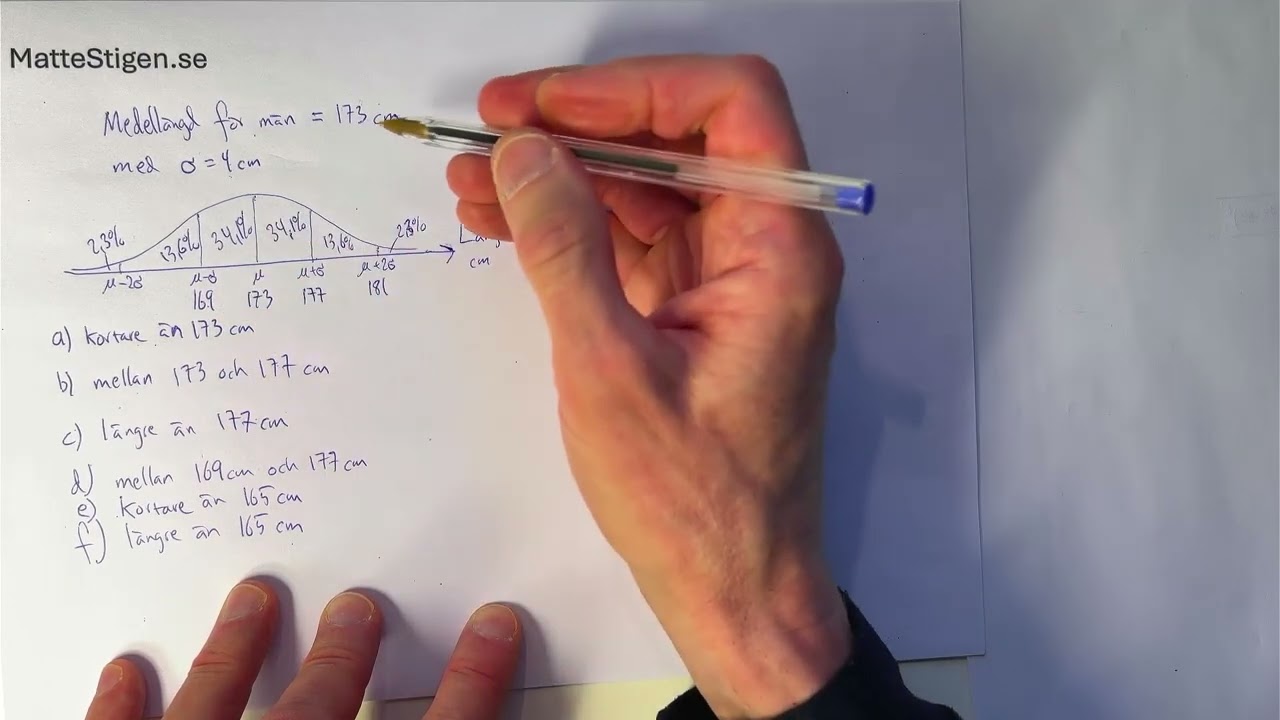 MatteStigen.se
Medellängd för män = 173 cm
med σ = 4 cm
2,3% 13,6% 34,1% 34,1% 13,6% 2,3%
μ-2σ μ-σ μ μ+σ μ+2σ cm
169 173 177 181
a) kortare än 173 cm
b) mellan 173 och 177 cm
c) längre än 177 cm
d) mellan 169 cm och 177 cm
e) kortare än 165 cm
f) längre än 165 cm